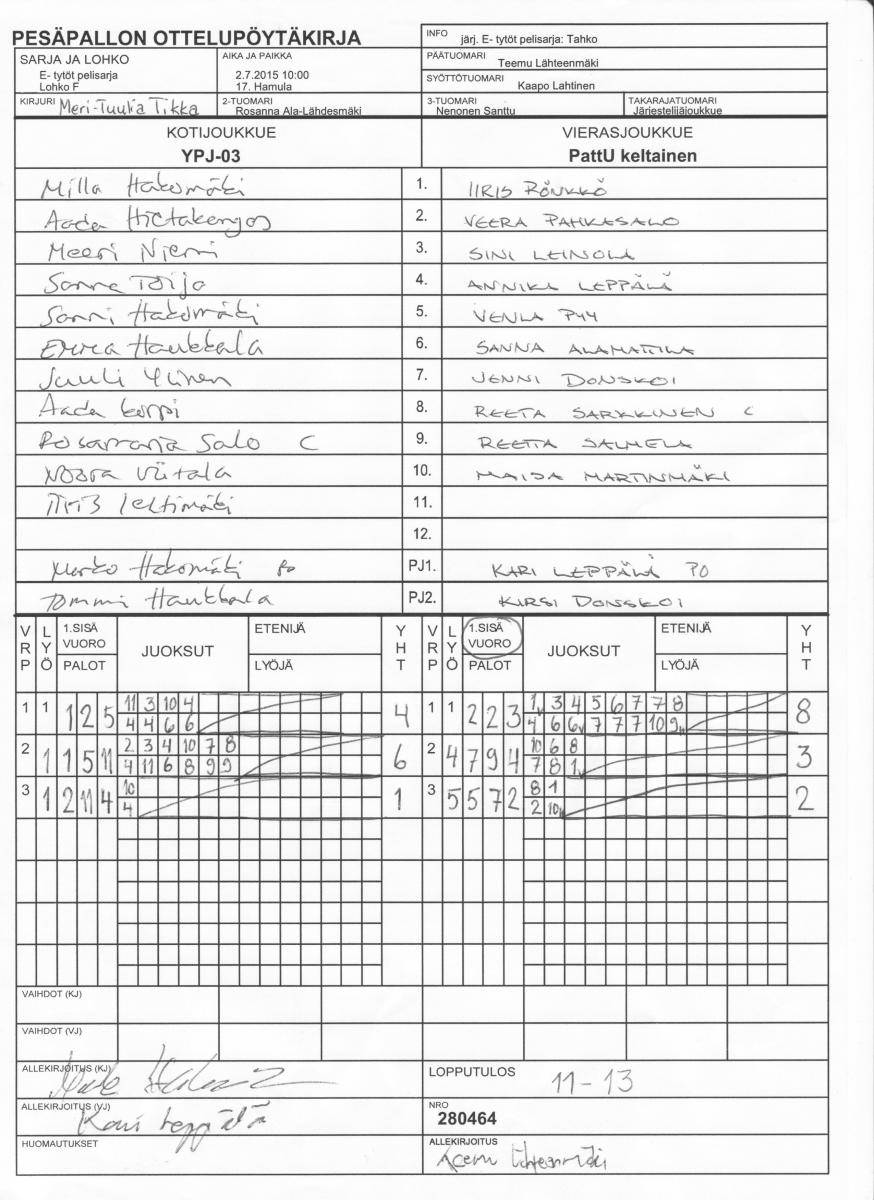 PESÄPALLON OTTELUPÖYTÄKIRJA
INFO järj. E- tytöt pelisarja: Tahko
SARJA JA LOHKO
E- tytöt pelisarja
Lohko F
AIKA JA PAIKKA
2.7.2015 10:00
17. Hamula
PÄÄTUOMARI
Teemu Lähteenmäki
SYÖTTÖTUOMARI
Kaapo Lahtinen
KIRJURI Meri-Tuulia Tikka
2-TUOMARI
Rosanna Ala-Lähdesmäki
3-TUOMARI
Nenonen Santtu
TAKARAJATUOMARI
Järjestelijäjoukkue
KOTIJOUKKUE
YPJ-03
VIERASJOUKKUE
PattU keltainen
Milla Hakomäki 1. IIRIS RÖNKKÖ
Aada Hietakangas 2. VEERA PAHKASALO
Meeri Niemi 3. SINI LEINOLA
Sanne Töija 4. ANNIKA LEPPÄLÄ
Sanni Hakomäki 5. VENLA PYY
Emma Haukkala 6. SANNA ALAMATTILA
Juuli Ylinen 7. JENNI DONSKOI
Aada Korpi 8. REETA SARKKINEN C
Rosamaria Salo C 9. REETTA SALMELA
Noora Viitala 10. MAIJA MARTINMÄKI
Lehtimäki 11.
12.
Marko Hakomäki PO PJ1. KARI LEPPÄLÄ PO
Tommi Haukkala PJ2. KIRSI DONSKOI
VRP LYÖ 1.SISÄ VUORO PALOT JUOKSUT ETENIJÄ LYÖJÄ YHT VRP LYÖ 1.SISÄ VUORO PALOT JUOKSUT ETENIJÄ LYÖJÄ YHT
1 1 1 2 5 11 3 10 4 4 1 1 2 2 3 1 3 4 5 6 7 7 8 8
4 4 6 6 4 6 6 7 7 7 10 9
2 1 1 5 11 2 3 4 10 7 8 6 2 4 7 9 4 10 6 8 3
4 11 6 8 9 9 7 8 1
3 1 2 11 4 10 1 3 5 5 7 2 8 1 2
4 2 10
VAIHDOT (KJ)
VAIHDOT (VJ)
ALLEKIRJOITUS (KJ)
LOPPUTULOS 11-13
ALLEKIRJOITUS (VJ) Kari Leppälä
NRO
280464
HUOMAUTUKSET
ALLEKIRJOITUS
Teemu Lähteenmäki